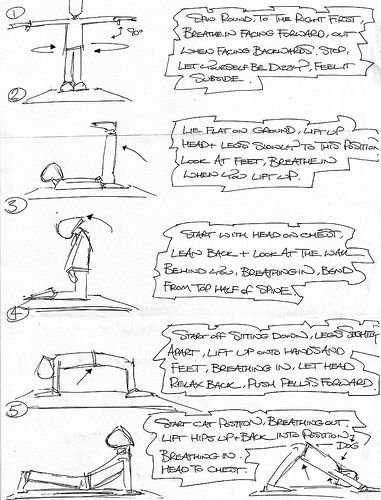 1
90°
SPIN ROUND, TO THE RIGHT FIRST,
BREATHE IN FACING FORWARD, OUT
WHEN FACING BACKWARDS. STOP.
LET YOURSELF BE DIZZY, FEEL IT
SUBSIDE.
2
LIE FLAT ON GROUND, LIFT UP
HEAD + LEGS SLOWLY TO THIS POSITION
LOOK AT FEET, BREATHE IN
WHEN YOU LIFT UP.
3
START WITH HEAD ON CHEST,
LEAN BACK + LOOK AT THE WALL
BEHIND YOU, BREATHING IN, BEND
FROM TOP HALF OF SPINE.
4
START OFF SITTING DOWN, LEGS SLIGHTLY
APART, LIFT UP ONTO HANDS AND
FEET, BREATHING IN, LET HEAD
RELAX BACK, PUSH PELVIS FORWARD.
5
START CAT POSITION, BREATHING OUT,
LIFT HIPS UP + BACK INTO POSITION
DOG
BREATHING IN.
HEAD TO CHEST.